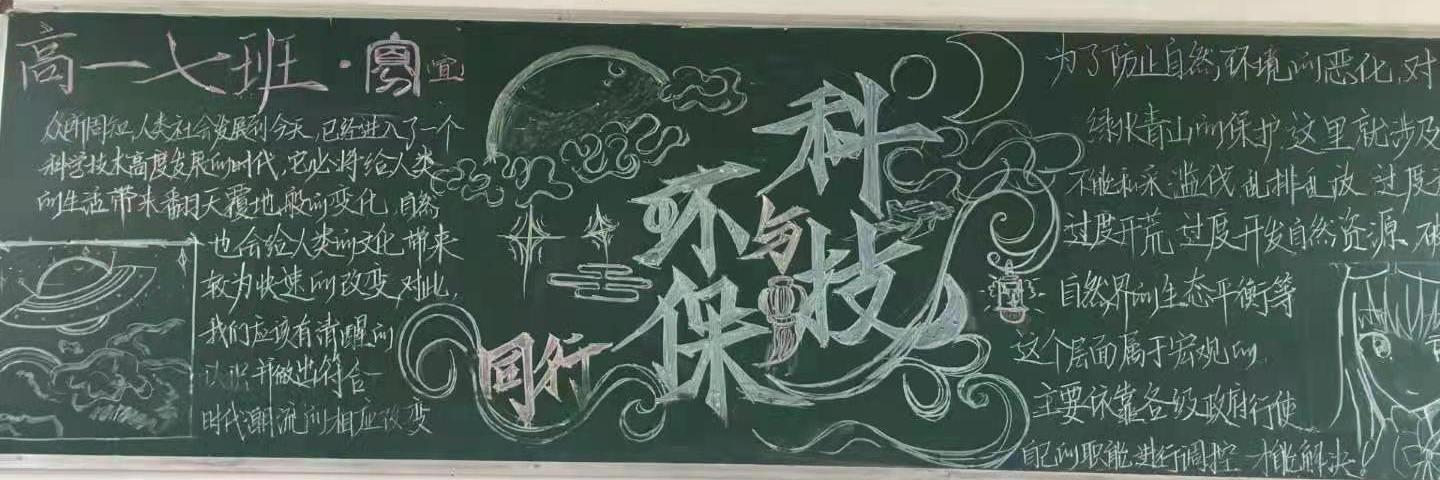 高一七班·
宣
众所周知,人类社会发展到今天,已经进入了一个
科学技术高度发展的时代,它必将给人类
的生活带来翻天覆地般的变化,自然
也会给人类的文化带来
较为快速的改变,对此,
我们应该有清醒的
认识并做出符合
时代潮流的相应改变
科技
与
环保
同行
为了防止自然环境的恶化,对
绿水青山的保护这里就涉及
不能私采滥伐、乱排乱放、过度
过度开荒、过度开发自然资源、破
自然界的生态平衡等
这个层面属于宏观的
主要依靠各级政府行使
自己的职能进行调控,才能解决!